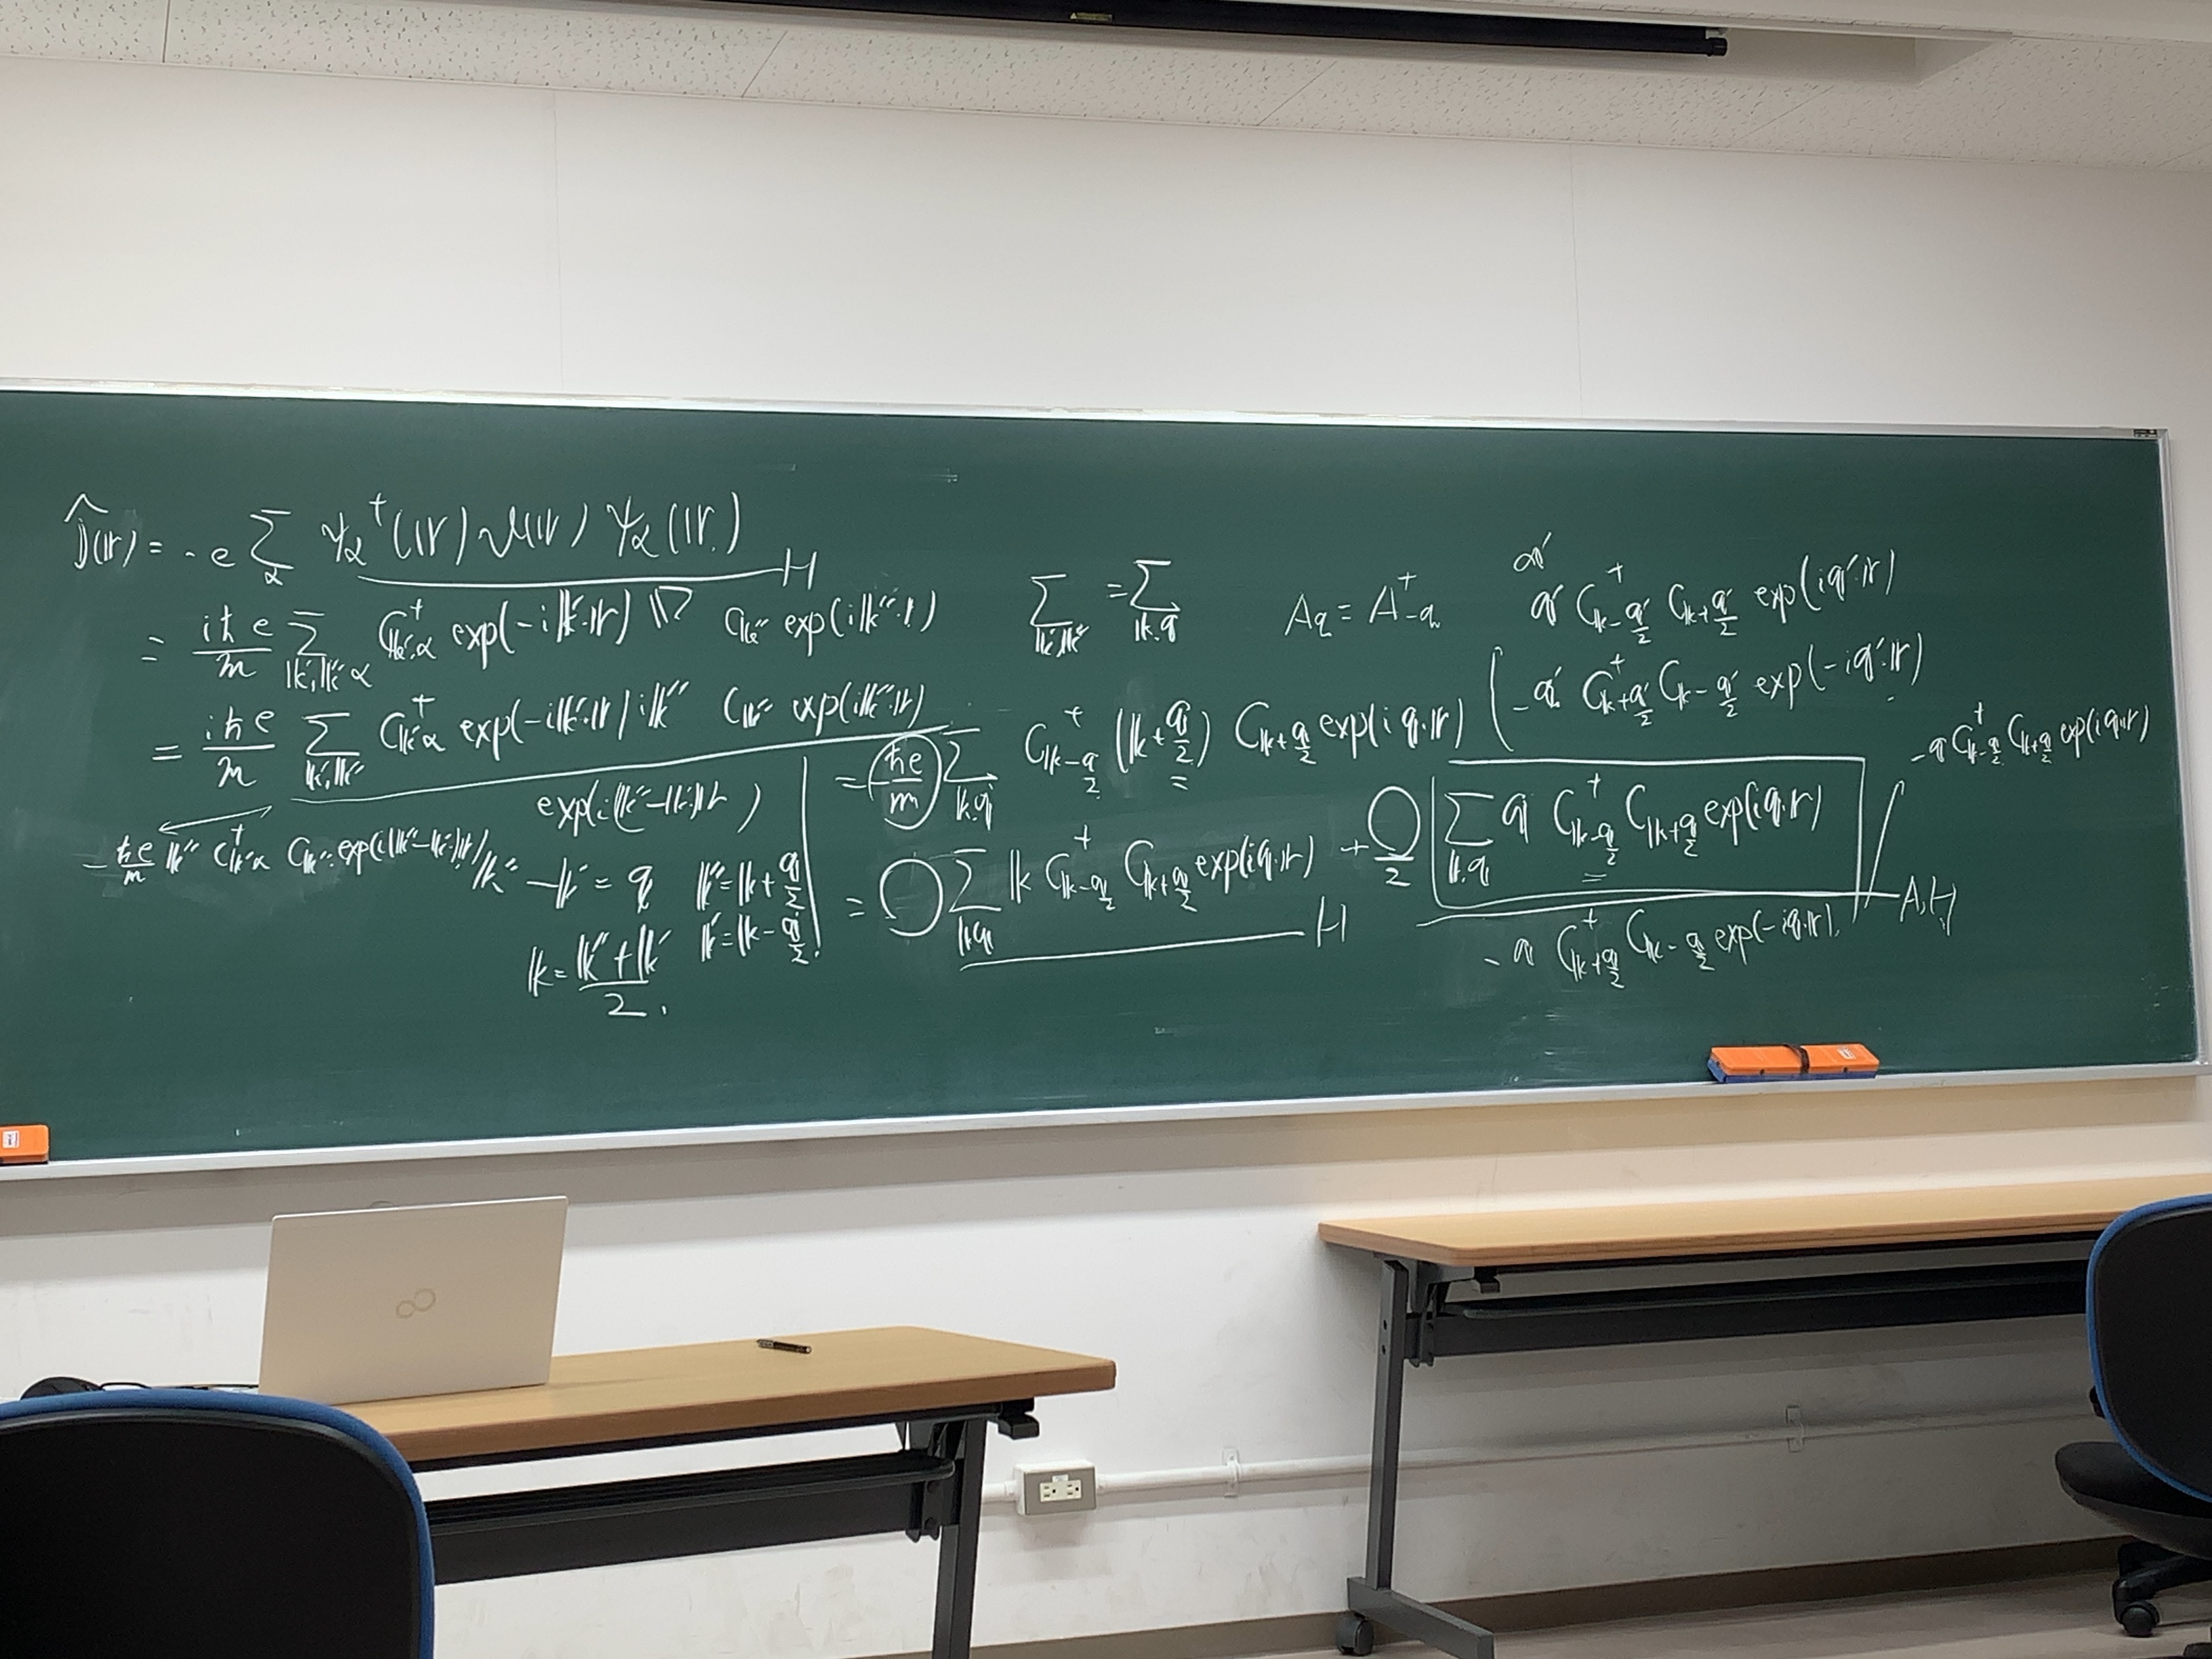 ĵ(𝕣) = -e Σ_α ψ_α^†(𝕣) v(𝕣) ψ_α(𝕣) H
= iħe/m Σ_{𝕜',𝕜'' α} C_{𝕜'α}^† exp(-i𝕜'·𝕣) ∇ C_{𝕜''} exp(i𝕜''·𝕣)
= iħe/m Σ_{𝕜',𝕜''} C_{𝕜'α}^† exp(-i𝕜'·𝕣) i𝕜'' C_{𝕜''} exp(i𝕜''·𝕣)
exp(i(𝕜''-𝕜')𝕣)
-ħe/m 𝕜'' C_{𝕜'α}^† C_{𝕜''} exp(i(𝕜''-𝕜')𝕣)
𝕜''-𝕜' = q 𝕜'' = 𝕜 + q/2
𝕜 = (𝕜''+𝕜')/2. 𝕜' = 𝕜 - q/2.
Σ_{𝕜',𝕜''} = Σ_{𝕜,q}
= -ħe/m Σ_{𝕜,q} C_{𝕜-q/2}^† (𝕜+q/2) C_{𝕜+q/2} exp(iq·𝕣)
= ◯ Σ_{𝕜,q} 𝕜 C_{𝕜-q/2}^† C_{𝕜+q/2} exp(iq·𝕣) H + ◯/2 Σ_{𝕜,q} q C_{𝕜-q/2}^† C_{𝕜+q/2} exp(iq·𝕣) A.H
-q C_{𝕜+q/2}^† C_{𝕜-q/2} exp(-iq·𝕣)
A_q = A_{-q}^†
q'
q' C_{𝕜-q'/2}^† C_{𝕜+q'/2} exp(iq'·𝕣)
-q' C_{𝕜+q'/2}^† C_{𝕜-q'/2} exp(-iq'·𝕣)
-q C_{𝕜-q/2}^† C_{𝕜+q/2} exp(iq·𝕣)